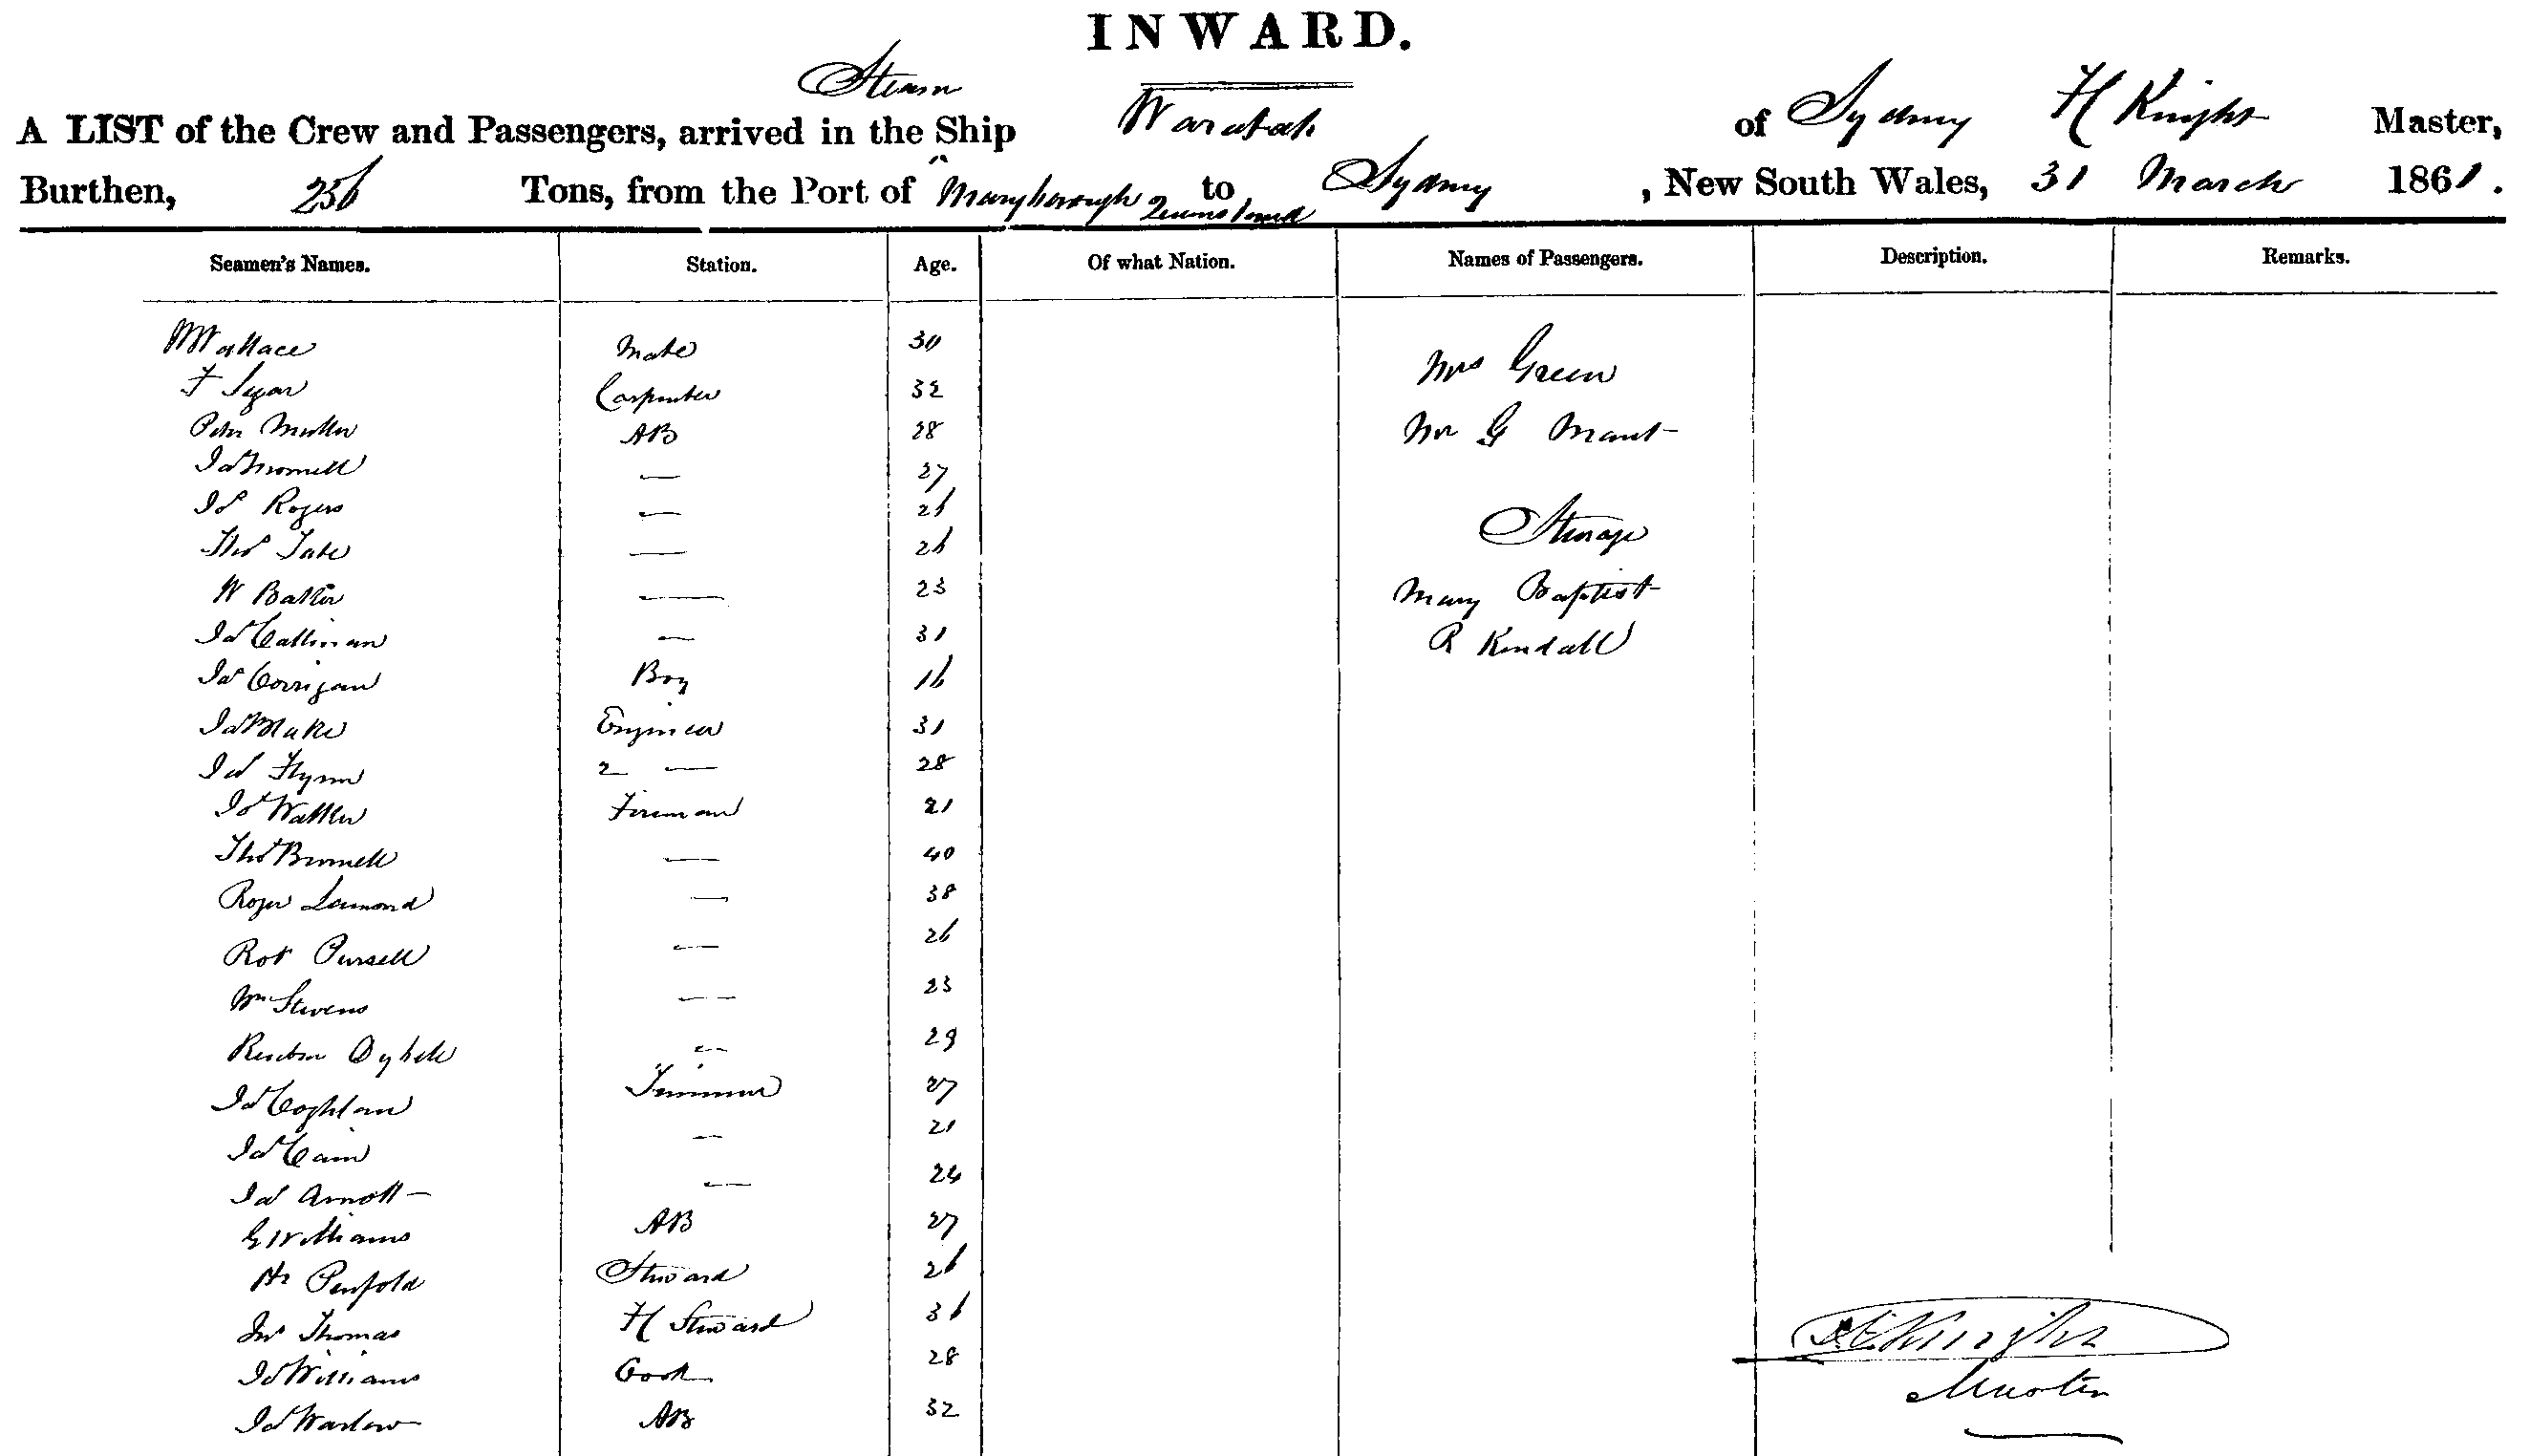 INWARD.
Steam
A LIST of the Crew and Passengers, arrived in the Ship Waratah of Sydney H Knight Master,
Burthen, 256 Tons, from the Port of Maryborough Queensland to Sydney, New South Wales, 31 March 1861.
Seamen's Names. Station. Age. Of what Nation. Names of Passengers. Description. Remarks.
Wallace Mate 30
Mrs Green
F Carpenter 32
Peter Muller AB 28
Mr G Mant
Jas — 27
Js Rogers — 26
Steerage
Thos Tate — 26
W — 23
Mary Baptist
Jas Callinan — 31
R Kendall
Jas Corrigan Boy 16
Jas Blake Engineer 31
Jas Flynn 2 — 28
Js Walker Fireman 21
Thos Bunnell — 40
Roger Lamond — 38
Robt Pursell — 26
Wm Stevens — 23
Reuben — 29
Jas Coghlan Trimmer 27
Jas Cain — 21
Jas Arnott — 24
G Williams AB 27
Hy Penfold Steward 26
Jno Thomas H Steward 36
H Knight
Js Williams Cook 28
Master
Js Warlow AB 32